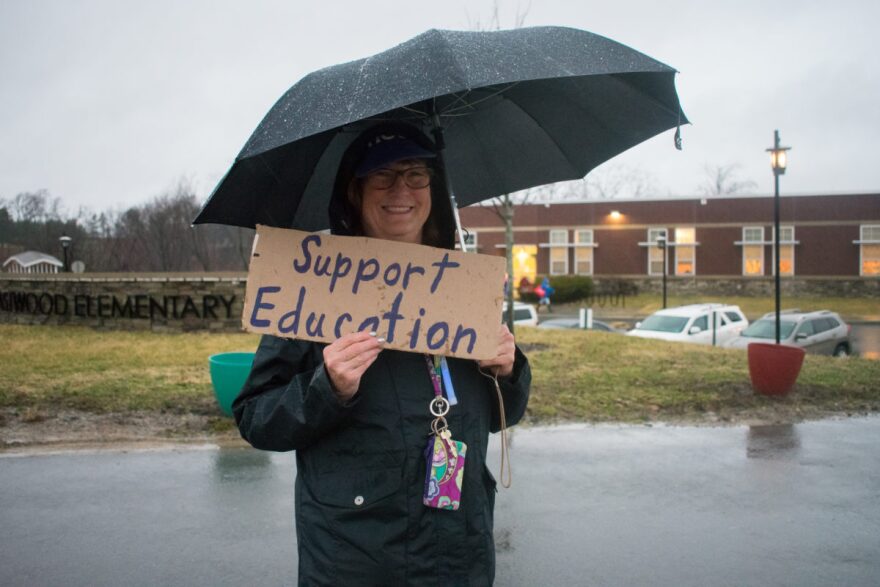 Support
Education
WOOD ELEMENTARY